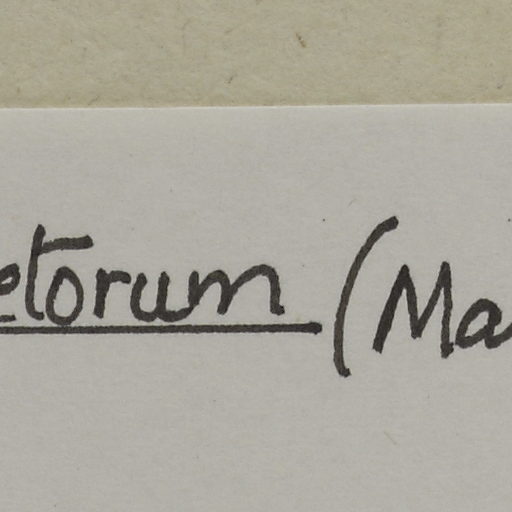 etorum (Ma